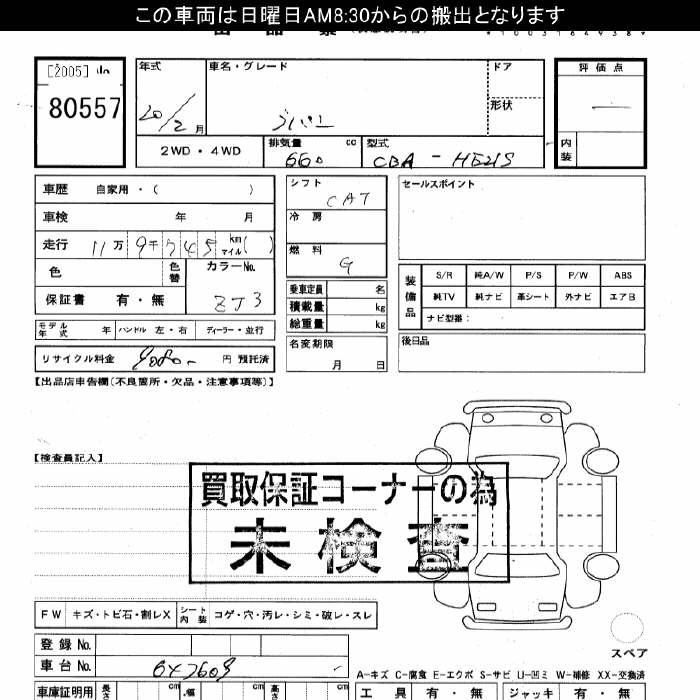 この車両は日曜日AM8:30からの搬出となります
[2005]
80557
年式
20/2月
車名・グレード
ラパン
ドア
形状
評価点
内装
2WD・4WD
排気量 cc
660
型式
CBA-HE21S
車歴 自家用・( )
車検 年 月
走行 11万9千745 km マイル( )
色
色替
カラーNo.
ZJ3
保証書 有・無
シフト
CAT
冷房
燃料
G
セールスポイント
乗車定員 名
積載量 kg
総重量 kg
装備品
S/R 純A/W P/S P/W ABS
純TV 純ナビ 革シート 外ナビ エアB
ナビ型番:
モデル年式 年 ハンドル 左・右 ディーラー・並行
名変期限
月 日
後日品
リサイクル料金 円 預託済
【出品店申告欄(不良箇所・欠品・注意事項等)】
【検査員記入】
買取保証コーナーの為
未検査
FW キズ・トビ石・割レX シート内装 コゲ・穴・汚レ・シミ・破レ・スレ
スペア
登録No.
車台No.
A-キズ C-腐食 E-エクボ S-サビ U-凹ミ W-補修 XX-交換済
車庫証明用 長さ cm 幅 cm 高さ cm
工具 有・無 ジャッキ 有・無